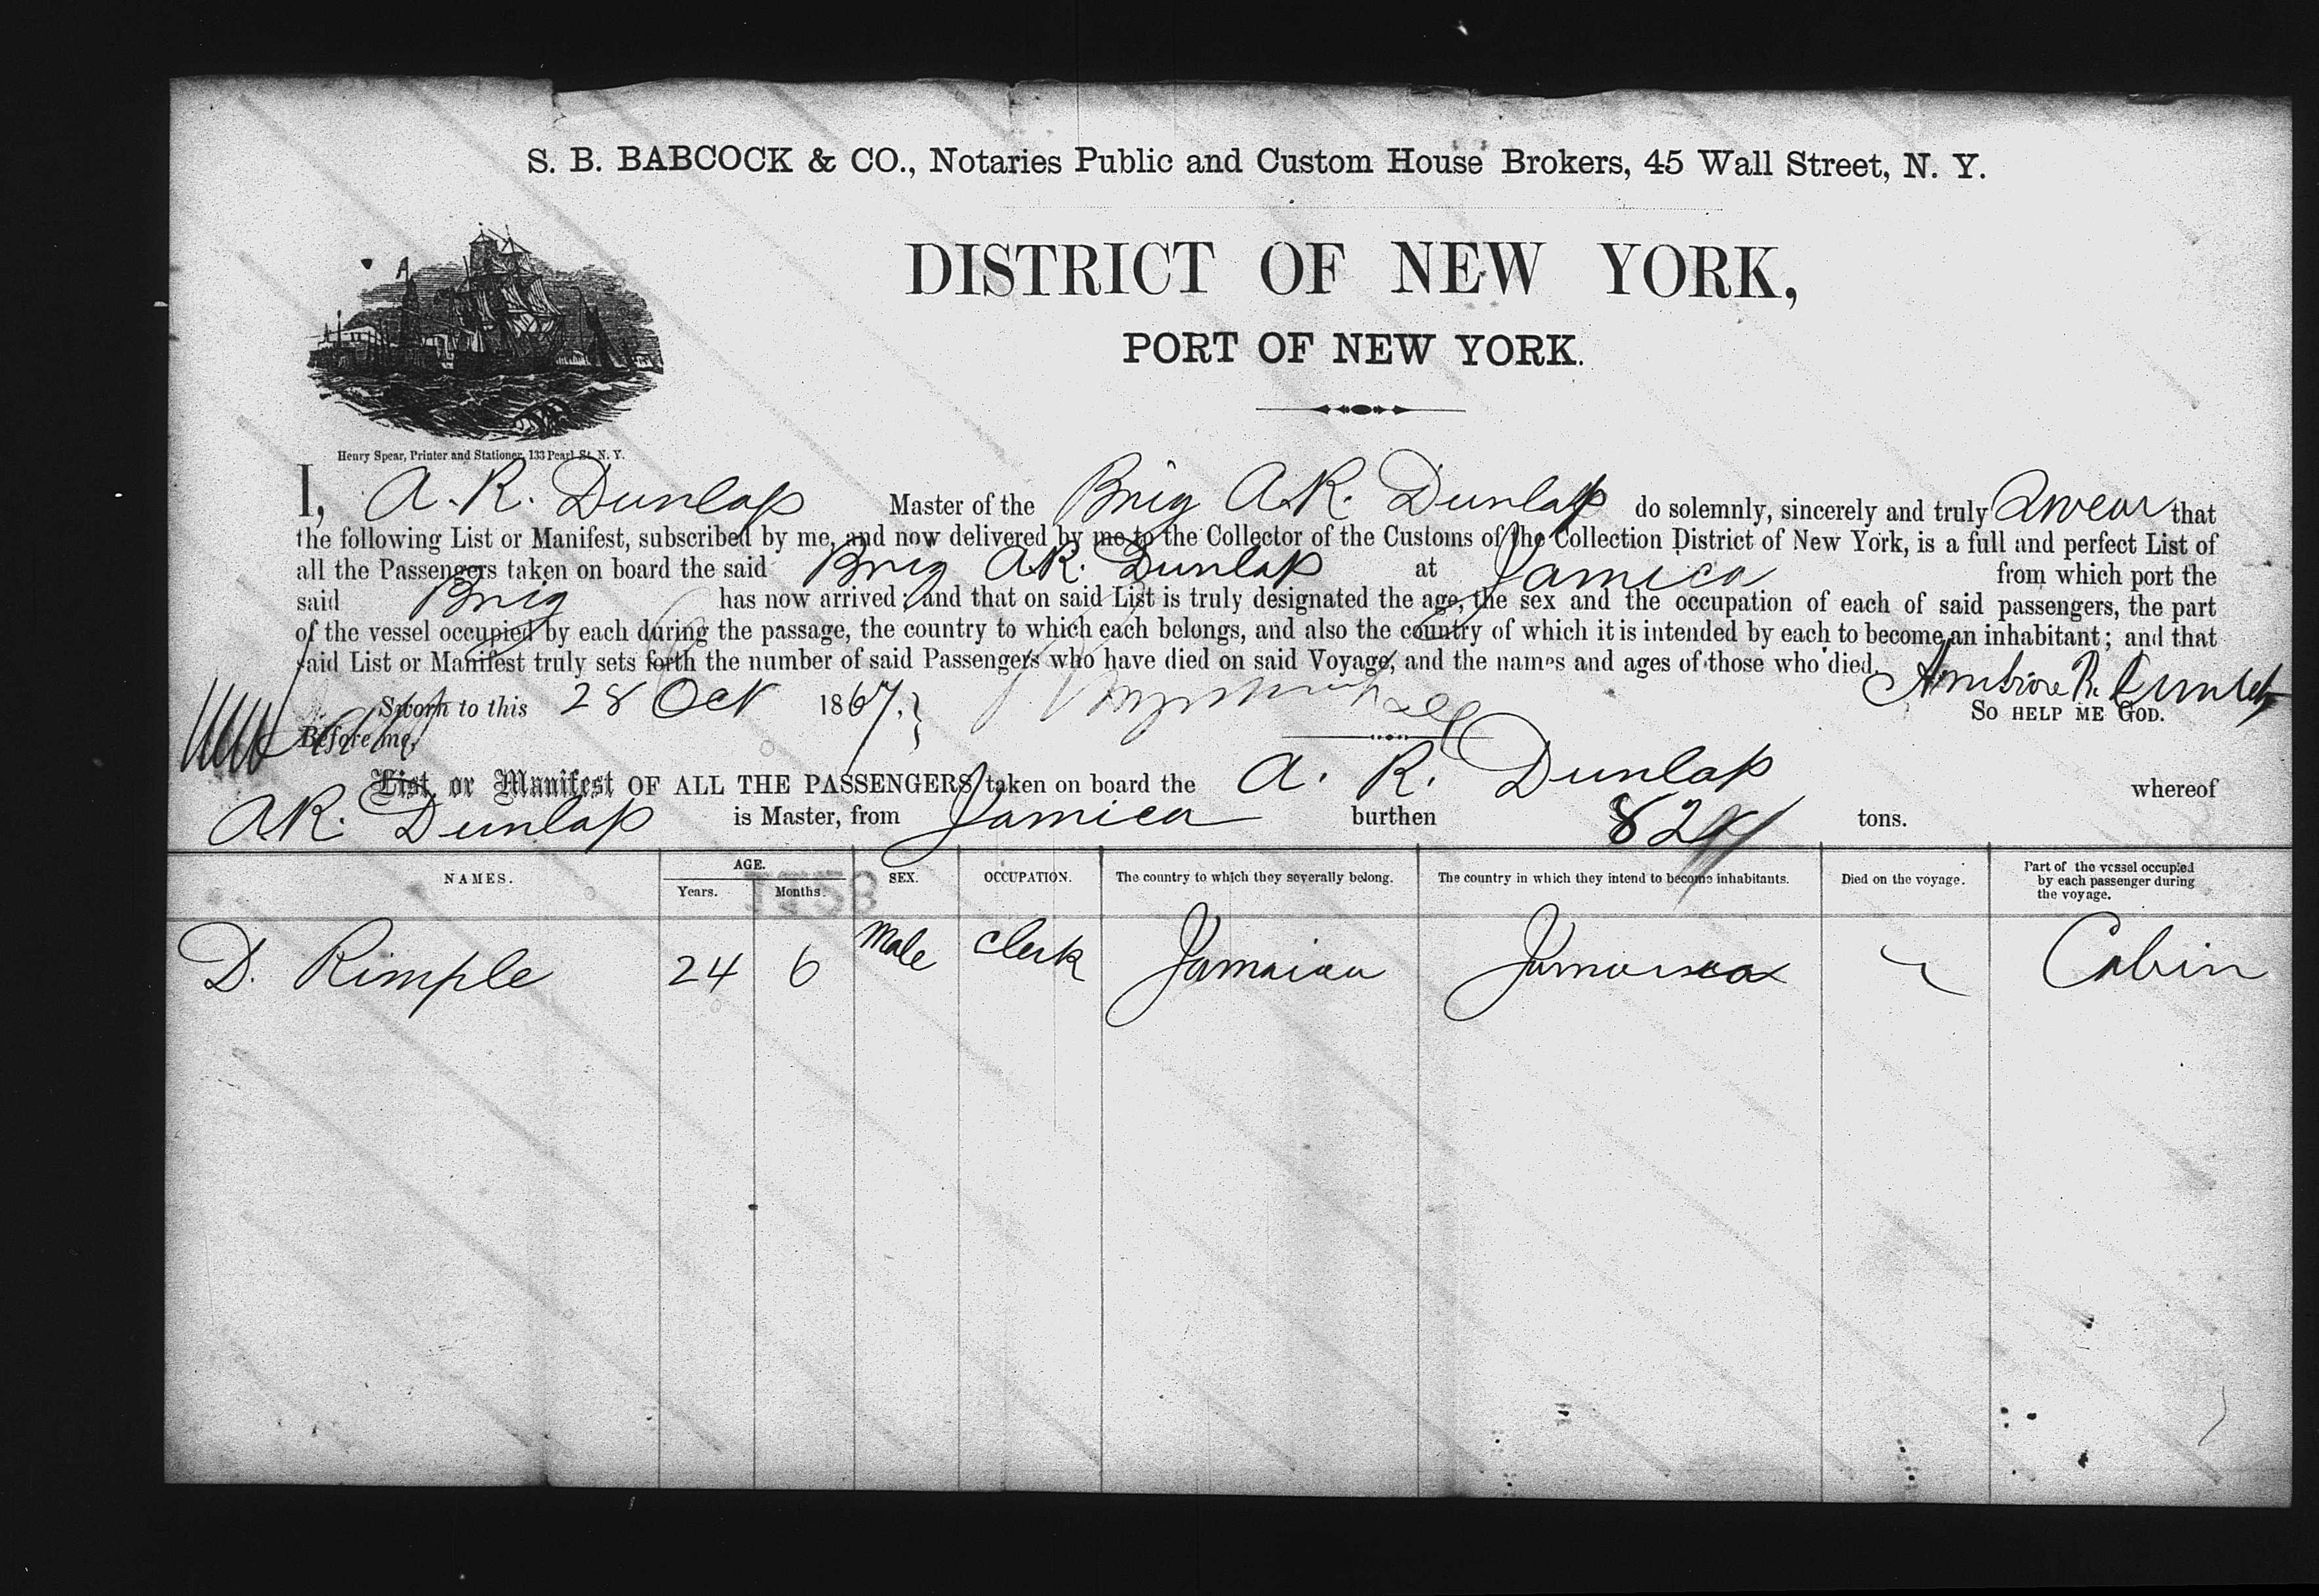 S. B. BABCOCK & CO., Notaries Public and Custom House Brokers, 45 Wall Street, N. Y.
DISTRICT OF NEW YORK,
PORT OF NEW YORK.
Henry Spear, Printer and Stationer, 133 Pearl St. N. Y.
I, A. R. Dunlap Master of the Brig A.R. Dunlap do solemnly, sincerely and truly Swear that
the following List or Manifest, subscribed by me, and now delivered by me to the Collector of the Customs of the Collection District of New York, is a full and perfect List of
all the Passengers taken on board the said Brig A.R. Dunlap at Jamica from which port the
said Brig has now arrived; and that on said List is truly designated the age, the sex and the occupation of each of said passengers, the part
of the vessel occupied by each during the passage, the country to which each belongs, and also the country of which it is intended by each to become an inhabitant; and that
said List or Manifest truly sets forth the number of said Passengers who have died on said Voyage, and the names and ages of those who died.
Ambrose R. Dunlap
Sworn to this 28 Oct 1867. SO HELP ME GOD.
Before me,
List or Manifest OF ALL THE PASSENGERS taken on board the A. R. Dunlap whereof
A.R. Dunlap is Master, from Jamica burthen tons.
NAMES. AGE. Years. Months. SEX. OCCUPATION. The country to which they severally belong. The country in which they intend to become inhabitants. Died on the voyage. Part of the vessel occupied by each passenger during the voyage.
1258
D. Rimple 24 6 Male Clerk Jamaica Jamaica Cabin